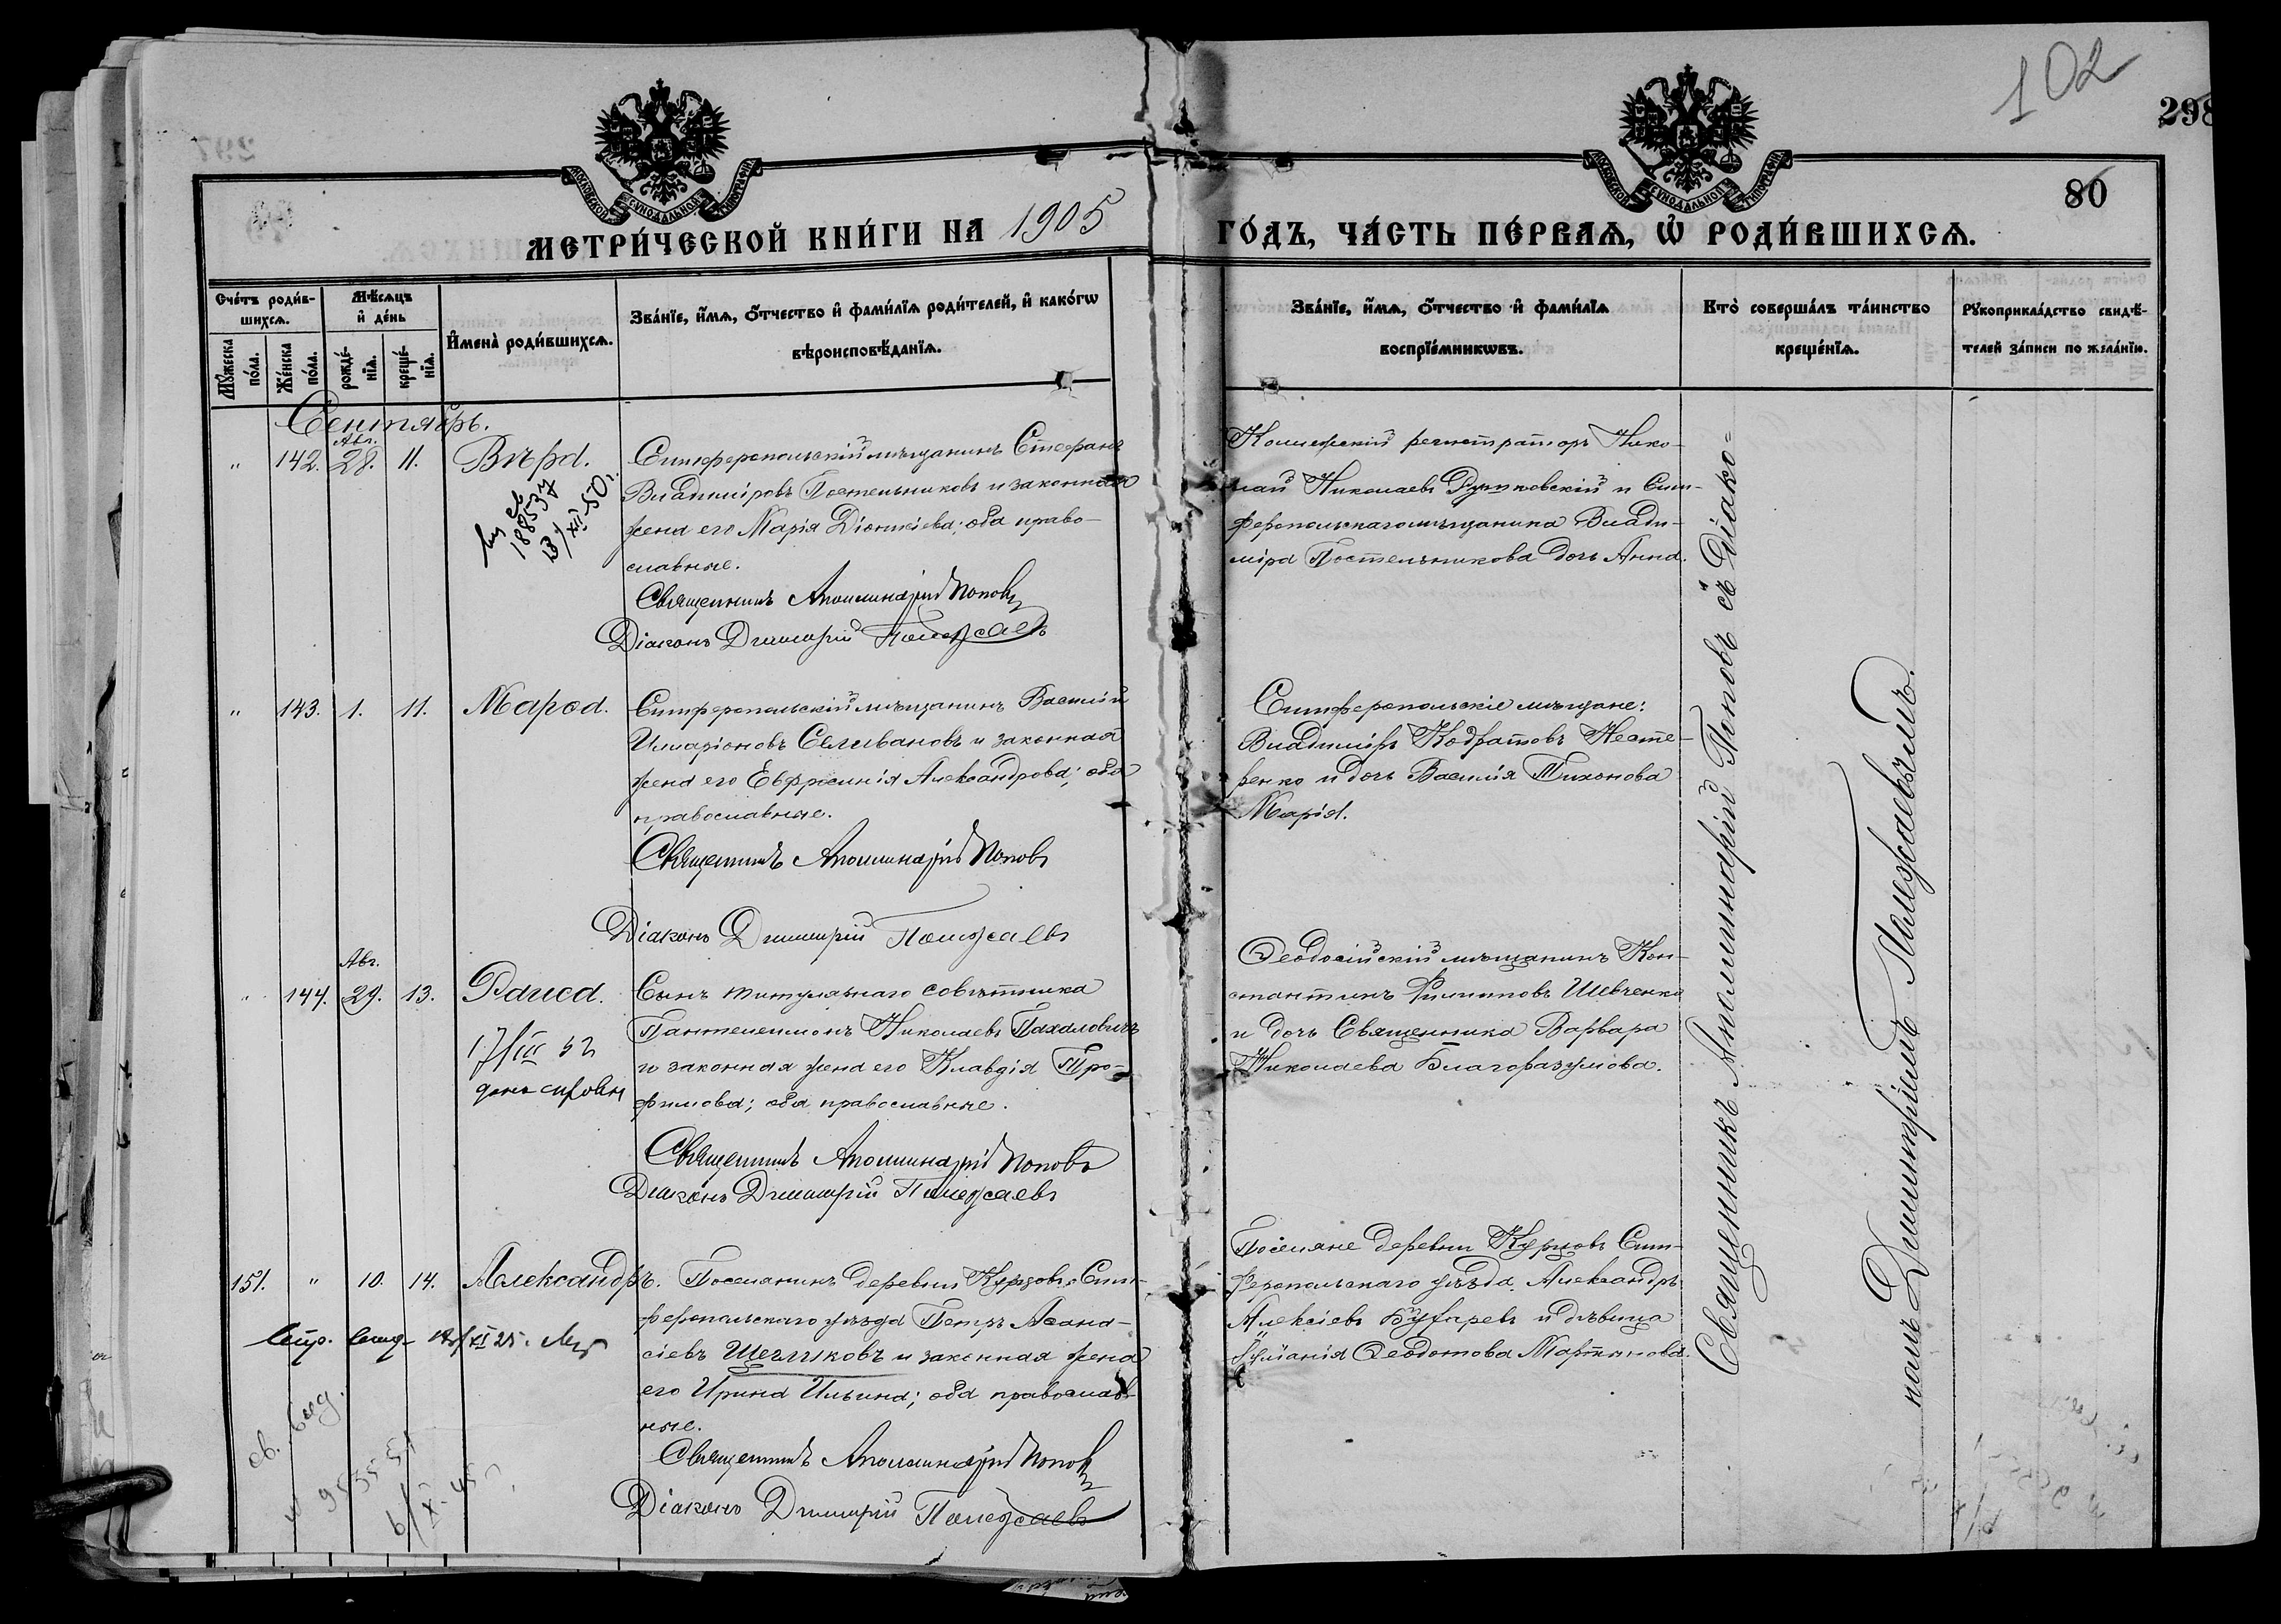 102
298
80
МОСКОВСКОЙ СѴНОДАЛЬНОЙ ТИПОГРАФІИ
МОСКОВСКОЙ СѴНОДАЛЬНОЙ ТИПОГРАФІИ
МЕТРИ́ЧЕСКОЙ КНИ́ГИ НА 1905
ГО́ДЪ, ЧА́СТЬ ПЕ́РВАѦ, Ѡ҆ РОДИ́ВШИХСѦ.
Сче́тъ роди́в-
шихсѧ.
Мꙋ́жеска
по́ла.
Же́нска
по́ла.
Мѣ́сѧцъ
и҆ де́нь
рожде́-
нїѧ.
креще́-
нїѧ.
И҆мена̀ роди́вшихсѧ.
Зва́нїе, и҆́мѧ, ѻ҆́тчество и҆ фами́лїѧ роди́телей, и҆ како́гѡ
вѣроисповѣ́данїѧ.
Зва́нїе, и҆́мѧ, ѻ҆́тчество и҆ фами́лїѧ
воспрїе́мникѡвъ.
Кто̀ соверша́лъ та́инство
креще́нїѧ.
Рꙋкоприкла́дство свидѣ́-
телей за́писи по жела́нїю.
Сентябрь.
" 142. Авг. 28. 11. Вѣра.
188537
13/XII-50 г.
Симферопольскій мѣщанинъ Стефанъ
Владиміровъ Постельниковъ и законная
жена его Марія Діонисіева; оба право-
славные.
Священникъ Аполлинарій Поповъ
Діаконъ Димитрій Полежаевъ
Коллежскій регистраторъ Нико-
лай Николаевъ Рутковскій и Сим-
феропольскаго мѣщанина Влади-
міра Постельникова дочь Анна.
" 143. 1. 11. Мавра.
Симферопольскій мѣщанинъ Василій
Илларіоновъ Селивановъ и законная
жена его Евфросинія Александрова; оба
православные.
Священникъ Аполлинарій Поповъ
Діаконъ Димитрій Полежаевъ
Симферопольскіе мѣщане:
Владиміръ Кодратовъ Несте-
ренко и дочь Василія Тихонова
Марія.
" 144. Авг. 29. 13. Раиса.
17/III 52
Сынъ титулярнаго совѣтника
Пантелеимонъ Николаевъ Пахаловичъ
и законная жена его Клавдія Тро-
фимова; оба православные.
Священникъ Аполлинарій Поповъ
Діаконъ Димитрій Полежаевъ
Ѳеодосійскій мѣщанинъ Кон-
стантинъ Филипповъ Шевченко
и дочь Священника Варвара
Николаева Благоразумова.
151. " 10. 14. Александръ.
Поселянинъ деревни Курцовъ, Сим-
феропольскаго уѣзда Петръ Аѳана-
сіевъ Щегликовъ и законная жена
его Ирина Ильина; оба православ-
ные.
Священникъ Аполлинарій Поповъ
Діаконъ Димитрій Полежаевъ
Поселяне деревни Курцовъ Сим-
феропольскаго уѣзда, Александръ
Алексіевъ Бухаревъ и дѣвица
Іуліанія Ѳеодотова Мартынова.
св. выд.
Священникъ Аполлинарій Поповъ съ Діако-
номъ Димитріемъ Полежаевымъ.